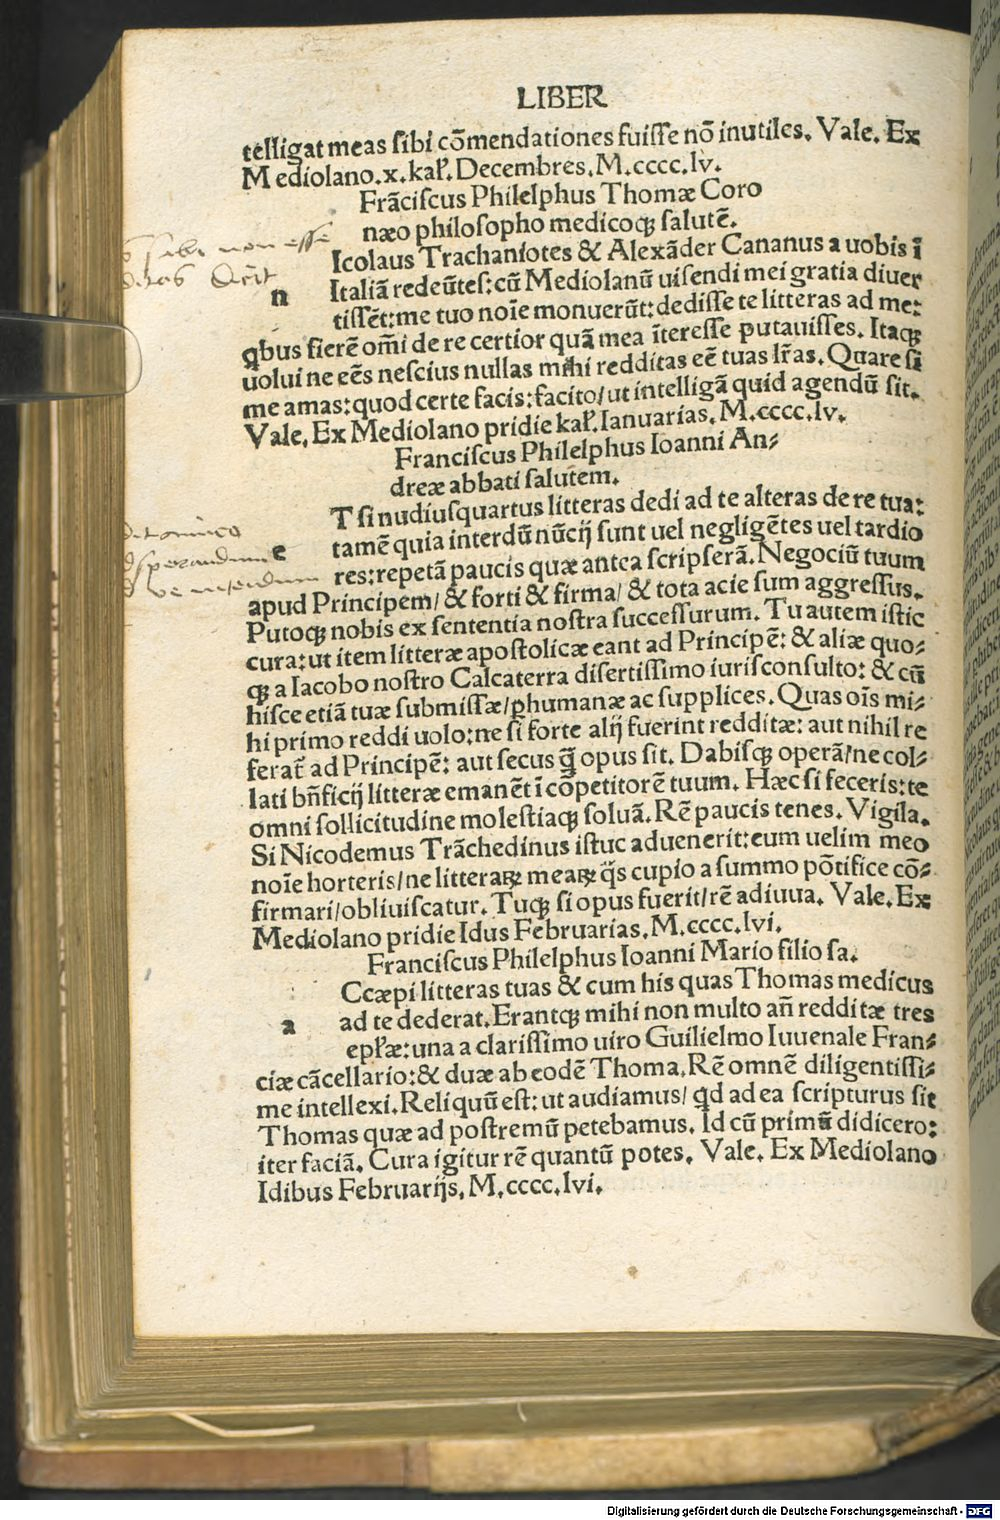 LIBER
telligat meas sibi cõmendationes fuisse nõ inutiles. Vale. Ex
Mediolano.x.kal. Decembres.M.cccc.lv.
Frãciscus Philelphus Thomæ Coro
næo philosopho medicoqꝫ salutẽ.
Icolaus Trachaniotes & Alexãder Cananus a uobis ĩ
n Italiã redeũtes: cũ Mediolanũ uisendi mei gratia diuer
tissẽt: me tuo noĩe monuerũt: dedisse te litteras ad me:
qbus fierẽ om̃i de re certior quã mea ĩteresse putauisses. Itaqꝫ
uolui ne eẽs nescius nullas mihi redditas eẽ tuas lr̃as. Quare si
me amas: quod certe facis: facito/ ut intelligã quid agendũ sit.
Vale. Ex Mediolano pridie kal. Ianuarias. M.cccc.lv.
Franciscus Philelphus Ioanni An⸗
dreæ abbati salutem.
T si nudiusquartus litteras dedi ad te alteras de re tua:
e tamẽ quia interdũ nũcij sunt uel negligẽtes uel tardio
res: repetã paucis quæ antea scripserã. Negociũ tuum
apud Principem/ & forti & firma/ & tota acie sum aggressus.
Putoqꝫ nobis ex sententia nostra successurum. Tu autem istic
cura: ut item litteræ apostolicæ eant ad Principẽ: & aliæ quo⸗
qꝫ a Iacobo nostro Calcaterra disertissimo iurisconsulto: & cũ
hisce etiã tuæ submissæ/ ꝑhumanæ ac supplices. Quas oĩs mi⸗
hi primo reddi uolo: ne si forte alij fuerint redditæ: aut nihil re
ferat̃ ad Principẽ: aut secus q̃ opus sit. Dabisqꝫ operã/ ne col⸗
lati bñficij litteræ emanẽt ĩ cõpetitorẽ tuum. Hæc si feceris: te
omni sollicitudine molestiaqꝫ soluã. Rẽ paucis tenes. Vigila.
Si Nicodemus Trãchedinus istuc aduenerit: eum uelim meo
noĩe horteris/ ne litteraꝝ meaꝝ q̃s cupio a summo põtifice cõ⸗
firmari/ obliuiscatur. Tuqꝫ si opus fuerit/ rẽ adiuua. Vale. Ex
Mediolano pridie Idus Februarias. M.cccc.lvi.
Franciscus Philelphus Ioanni Mario filio sa.
Ccæpi litteras tuas & cum his quas Thomas medicus
a ad te dederat. Erantqꝫ mihi non multo añ redditæ tres
epl̃æ: una a clarissimo uiro Guilielmo Iuuenale Fran⸗
ciæ cãcellario: & duæ ab eodẽ Thoma. Rẽ omnẽ diligentissi⸗
me intellexi. Reliquũ est: ut audiamus/ qd ad ea scripturus sit
Thomas quæ ad postremũ petebamus. Id cũ primũ didicero:
iter faciã. Cura igitur rẽ quantũ potes. Vale. Ex Mediolano
Idibus Februarijs. M.cccc.lvi.
sibi non esse
Digitalisierung gefördert durch die Deutsche Forschungsgemeinschaft - DFG